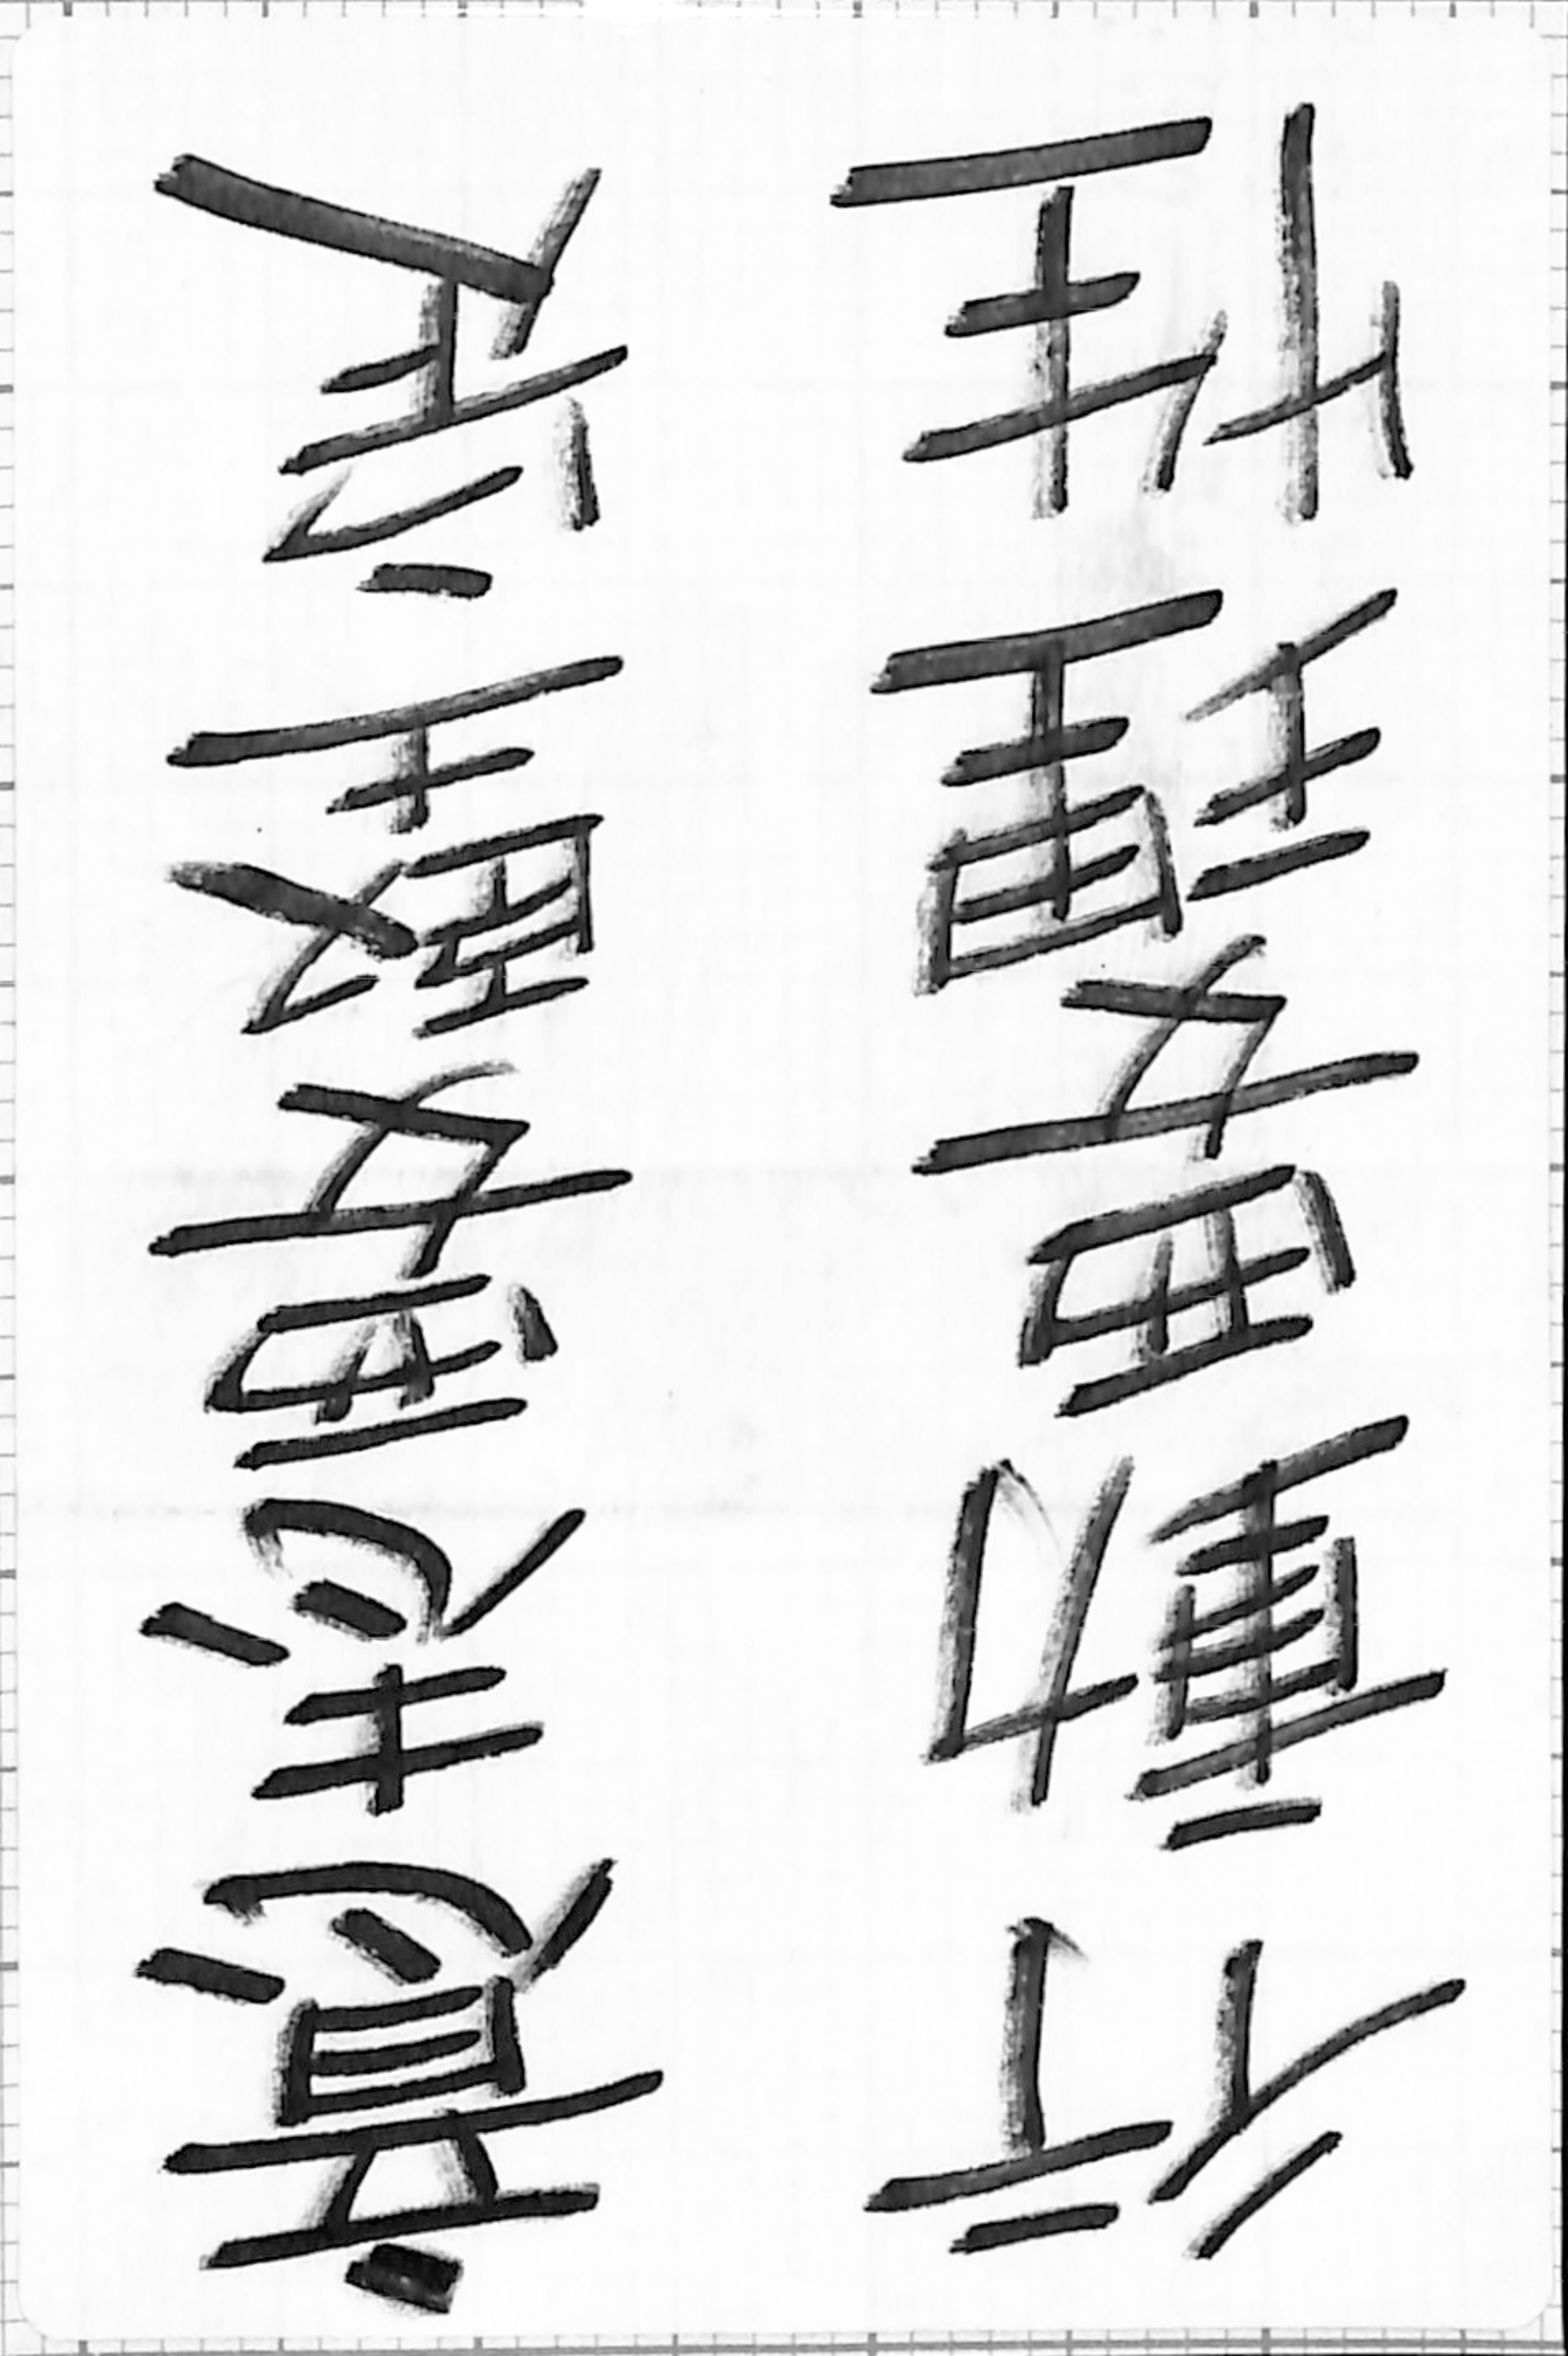 意志要堅定
行動要理性